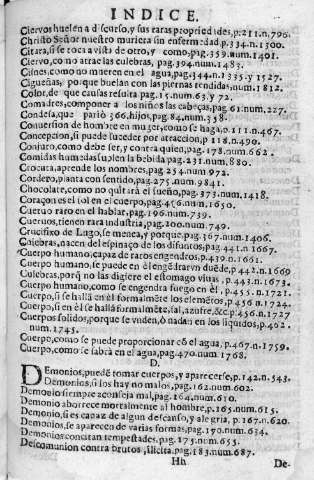 INDICE.
Ciervos huelen a discurso, y sus raras propriedades, p. 211.n.790.
Christo Señor nuestro muriera sin enfermedad.p.334.n.1300.
Citara, si se toca a vista de otro, y como, pag.359.num.1401.
Ciervo, como atrae las culebras, pag.394.num.1483.
Cisnes, como no mueren en el agua, pag.344.n.1335.y 1527.
Cigueñas, por que buelan con las piernas tendidas, num.1812.
Color, de que causas resulta pag.15.num.63.y 72.
Comadres, componer a los niños las cabeças, pag.61.num.227.
Condesa, que pariò 366.hijos, pag.84.num.358.
Conversion de hombre en muger, como se haga, p.111.n.467.
Concepcion, si puede suceder por atraccion, p.118.n.490.
Conjuro, como debe ser, y contra quien, pag.178.num.662.
Comidas humedas suplen la bebida pag.231.num.880.
Crocuta, aprende los nombres, pag.254.num.972.
Cordero, planta con sentido, pag.275.num.9841.
Chocolate, como no quitarà el sueño, pag.373.num.1418.
Coraçon es el sol en el cuerpo, pag.456.num.1650.
Cuervo raro en el hablar, pag.196.num.739.
Cuervos, tienen rara industria, pag.200.num.749.
Crucifixo de Lugo, se menea, y porque, pag.367.num.1406.
Culebras, nacen del espinaço de los difuntos, pag.441.n.1667.
Cuerpo humano, capaz de raros engendros, p.439.n.1661.
Cuerpo humano, se puede en èl engẽdrar vn duẽde, p.442.n.1669
Culebras, porq̃ no las digiere el estomago vivas, p.443.n.1673.
Cuerpo humano, como se engendra fuego en èl, p.455.n.1721.
Cuerpo, si se halla en èl formalmẽte los elemẽtos, p.456 n.1724.
Cuerpo, si en èl se halla formalmẽte, sal, azufre, &c.p.456 n.1727
Cuerpos solidos, porque se vnden, ò nadan en los liquidos, p.462.
num.1743.
Cuerpo, como se puede proporcionar cõ el agua, p.467.n.1759.
Cuerpo, como se sabrà en el agua, pag.470.num.1768.
D.
DEmonios, puedẽ tomar cuerpos, y aparecerse, p.142.n.543.
Demonios, si los hay no malos, pag.162.num.602.
Demonio siempre aconseja mal, pag.164.num.610.
Demonio aborrece mortalmente al hombre, p.165.num.615.
Demonio, si es capaz de algun descanso, y alegria, p.167.n.620.
Demonio, se aparece de varias formas, pag.170.num.634.
Demonios concitan tempestades, pag.175.num.655.
Descomunion contra brutos, ilicita, pag.183.num.687.
Hh
De-